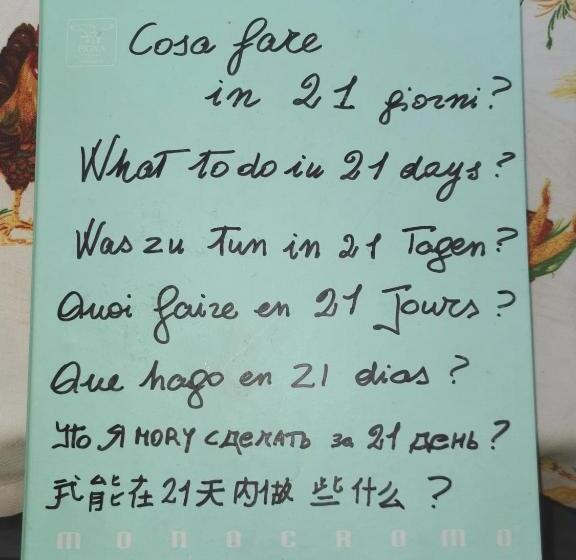 PIGNA
Cosa fare
in 21 giorni?
What to do in 21 days?
Was zu tun in 21 Tagen?
Quoi faire en 21 Jours?
Que hago en 21 dias?
Что я могу сделать за 21 день?
我能在21天内做些什么?
MONOCROMO